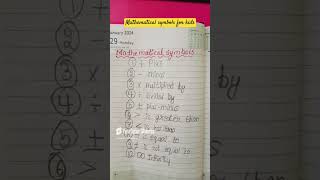 Mathematical symbols for kids
January 2024
29 Monday
Mathematical symbols
① + Plus
② - minus
③ × multiplied by
④ ÷ divided by
⑤ ± plus-minus
⑥ > is greater than
⑦ < is less than
⑧ = is equal to
⑨ ≠ is not equal to
⑩ ∞ Infinity